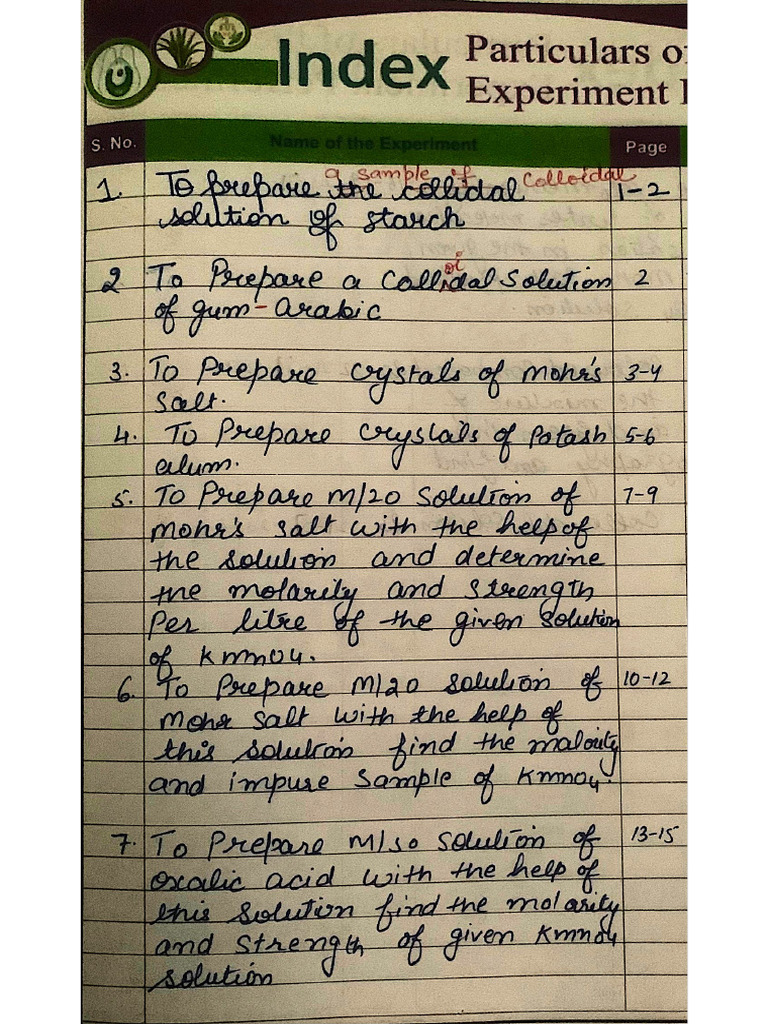 Index Particulars o
Experiment
S. No. Name of the Experiment Page
a sample of Colloidal
1. To prepare the collidal 1-2
solution of starch
oi
2 To Prepare a Collidal Solution 2
of gum-arabic
3. To Prepare crystals of mohr's 3-4
Salt.
4. To Prepare crystals of Potash 5-6
alum.
5. To Prepare M/20 Solution of 7-9
mohr's salt with the help of
the solution and determine
the molarity and strength
Per litre of the given solution
of kmno4.
6. To Prepare M/20 solution of 10-12
mohr salt with the help of
this solution find the malority
and impure sample of Kmno4.
7. To Prepare M/50 solution of 13-15
oxalic acid with the help of
this solution find the molarity
and strength of given Kmno4
solution